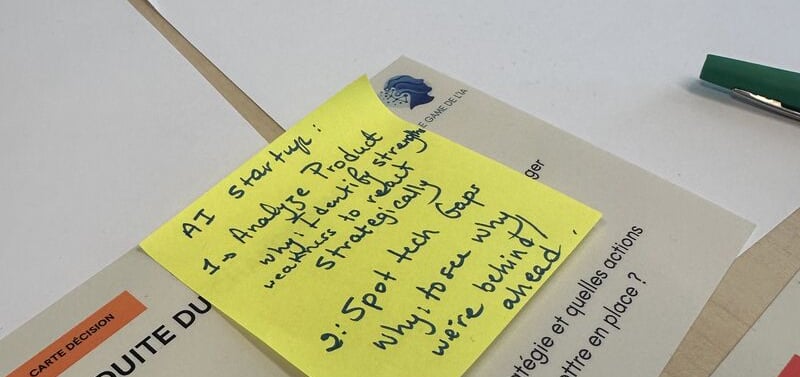 AI Startup:
1→ Analyze Product
why: Identify strength
weakness to react
strategically
2: Spot tech Gaps
why: to see why
we're behind/
ahead.
E GAME DE L'IA
ger
atégie et quelles actions
ettre en place ?
CARTE DÉCISION
DUITE DU